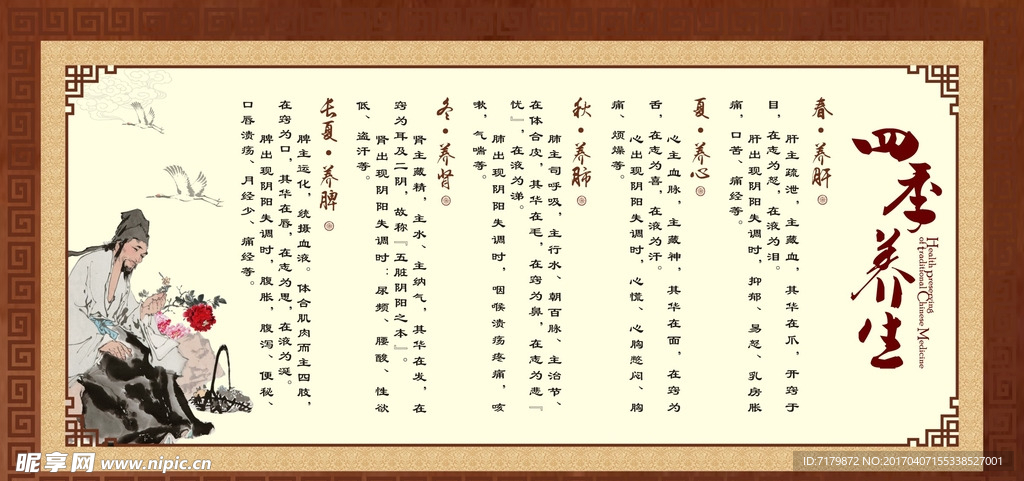 四季养生
Health preserving
of traditional Chinese Medicine
春·养肝
肝主疏泄，主藏血，其华在爪，开窍于
目，在志为怒，在液为泪。
肝出现阴阳失调时，抑郁、易怒、乳房胀
痛，口苦、痛经等。
夏·养心
心主血脉，主藏神，其华在面，在窍为
舌，在志为喜，在液为汗。
心出现阴阳失调时，心慌、心胸憋闷、胸
痛、烦燥等。
秋·养肺
肺主司呼吸，主行水、朝百脉、主治节、
在体合皮，其华在毛，在窍为鼻，在志为悲『
忧』，在液为涕。
肺出现阴阳失调时，咽喉溃疡疼痛，咳
嗽，气喘等。
冬·养肾
肾主藏精，主水、主纳气，其华在发，在
窍为耳及二阴，故称『五脏阴阳之本』。
肾出现阴阳失调时：尿频、腰酸、性欲
低、盗汗等。
长夏·养脾
脾主运化，统摄血液。体合肌肉而主四肢，
在窍为口，其华在唇，在志为思，在液为涎。
脾出现阴阳失调时，腹胀，腹泻、便秘、
口唇溃疡、月经少、痛经等。
昵享网 www.nipic.cn
ID:7179872 NO:20170407155338527001